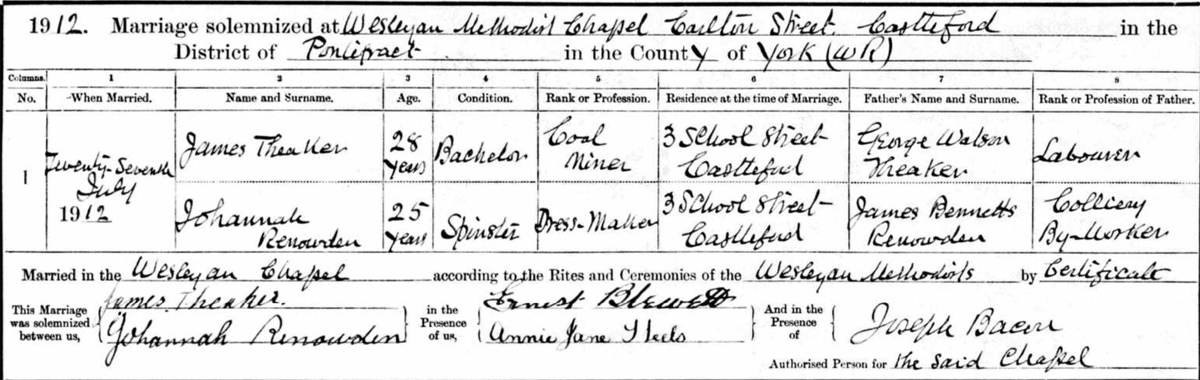 1912. Marriage solemnized at Wesleyan Methodist Chapel Carlton Street. Castleford in the
District of Pontefract in the County of York (WR)
Columns. 1 2 3 4 5 6 7 8
No. When Married. Name and Surname. Age. Condition. Rank or Profession. Residence at the time of Marriage. Father's Name and Surname. Rank or Profession of Father.
1 Twenty-Seventh July 1912 James Theaker 28 years Bachelor Coal Miner 3 School Street Castleford George Watson Theaker Labourer
Johannah Renowden 25 years Spinster Dress-Maker 3 School Street Castleford James Bennetts Renowden Colliery By-Worker
Married in the Wesleyan Chapel according to the Rites and Ceremonies of the Wesleyan Methodists by Certificate
This Marriage was solemnized between us, James Theaker. Johannah Renowden in the Presence of us, Ernest Blewett Annie Jane And in the Presence of Joseph Bacon
Authorised Person for the said Chapel